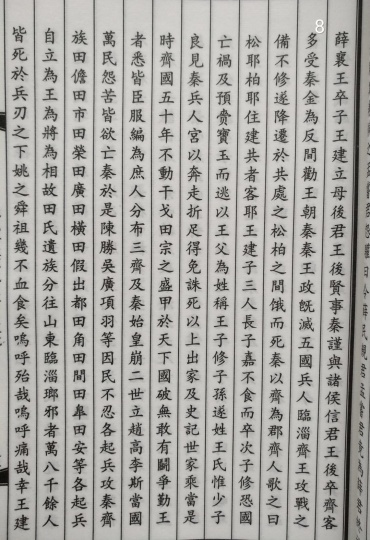 8
薛襄王卒子王建立母後君王後賢事秦謹與諸侯信君王後卒齊客
多受秦金為反間勸王朝秦秦王政旣滅五國兵人臨淄齊王攻戰之
備不修遂降遷於共處之松柏之間饿而死秦以齊為郡齊人歌之曰
松耶柏耶住建共者客耶王建子三人長子嘉不食而卒次子修恐國
亡禍及預賫寶玉而逃以王父為姓稱王子修子孫遂姓王氏惟少子
良見秦兵人宮以奔走折足得免誅死以上出家及史記世家乘當是
時齊國五十年不動干戈田宗之盛甲於天下國破無敢有鬪爭勤王
者悉皆臣服編為庶人分布三齊及秦始皇崩二世立趙高李斯當國
萬民怨苦皆欲亡秦於是陳勝吳廣項羽等因民不忍各起兵攻秦齊
族田儋田市田榮田廣田橫田假出都田角田間田皋田安等各起兵
自立為王為將為相故田氏遺族分往山東臨淄瑯邪者萬八千餘人
皆死於兵刃之下姚之舜祖幾不血食矣嗚呼殆哉嗚呼痛哉幸王建